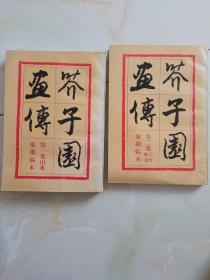 芥子園
畫傳
第一集山水
巢勳臨本
芥子園
畫傳
第二集
巢勳臨本